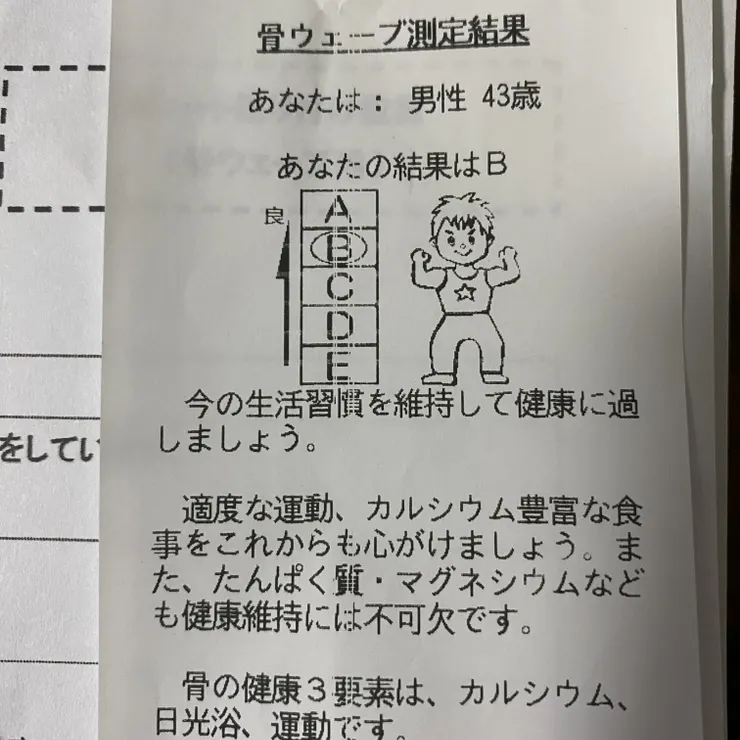 骨ウェーブ測定結果
あなたは： 男性 43歳
あなたの結果はB
良
A
B
C
D
E
今の生活習慣を維持して健康に過
しましょう。
適度な運動、カルシウム豊富な食
事をこれからも心がけましょう。ま
た、たんぱく質・マグネシウムなど
も健康維持には不可欠です。
骨の健康３要素は、カルシウム、
日光浴、運動です。
をしてい